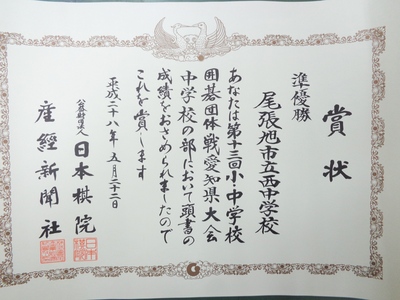 賞状
準優勝
尾張旭市立西中学校
あなたは第十三回小・中学校
囲碁団体戦愛知県大会
中学校の部において頭書の
成績をおさめられましたので
これを賞します
平成二十八年五月二十二日
公益財団法人日本棋院
産經新聞社